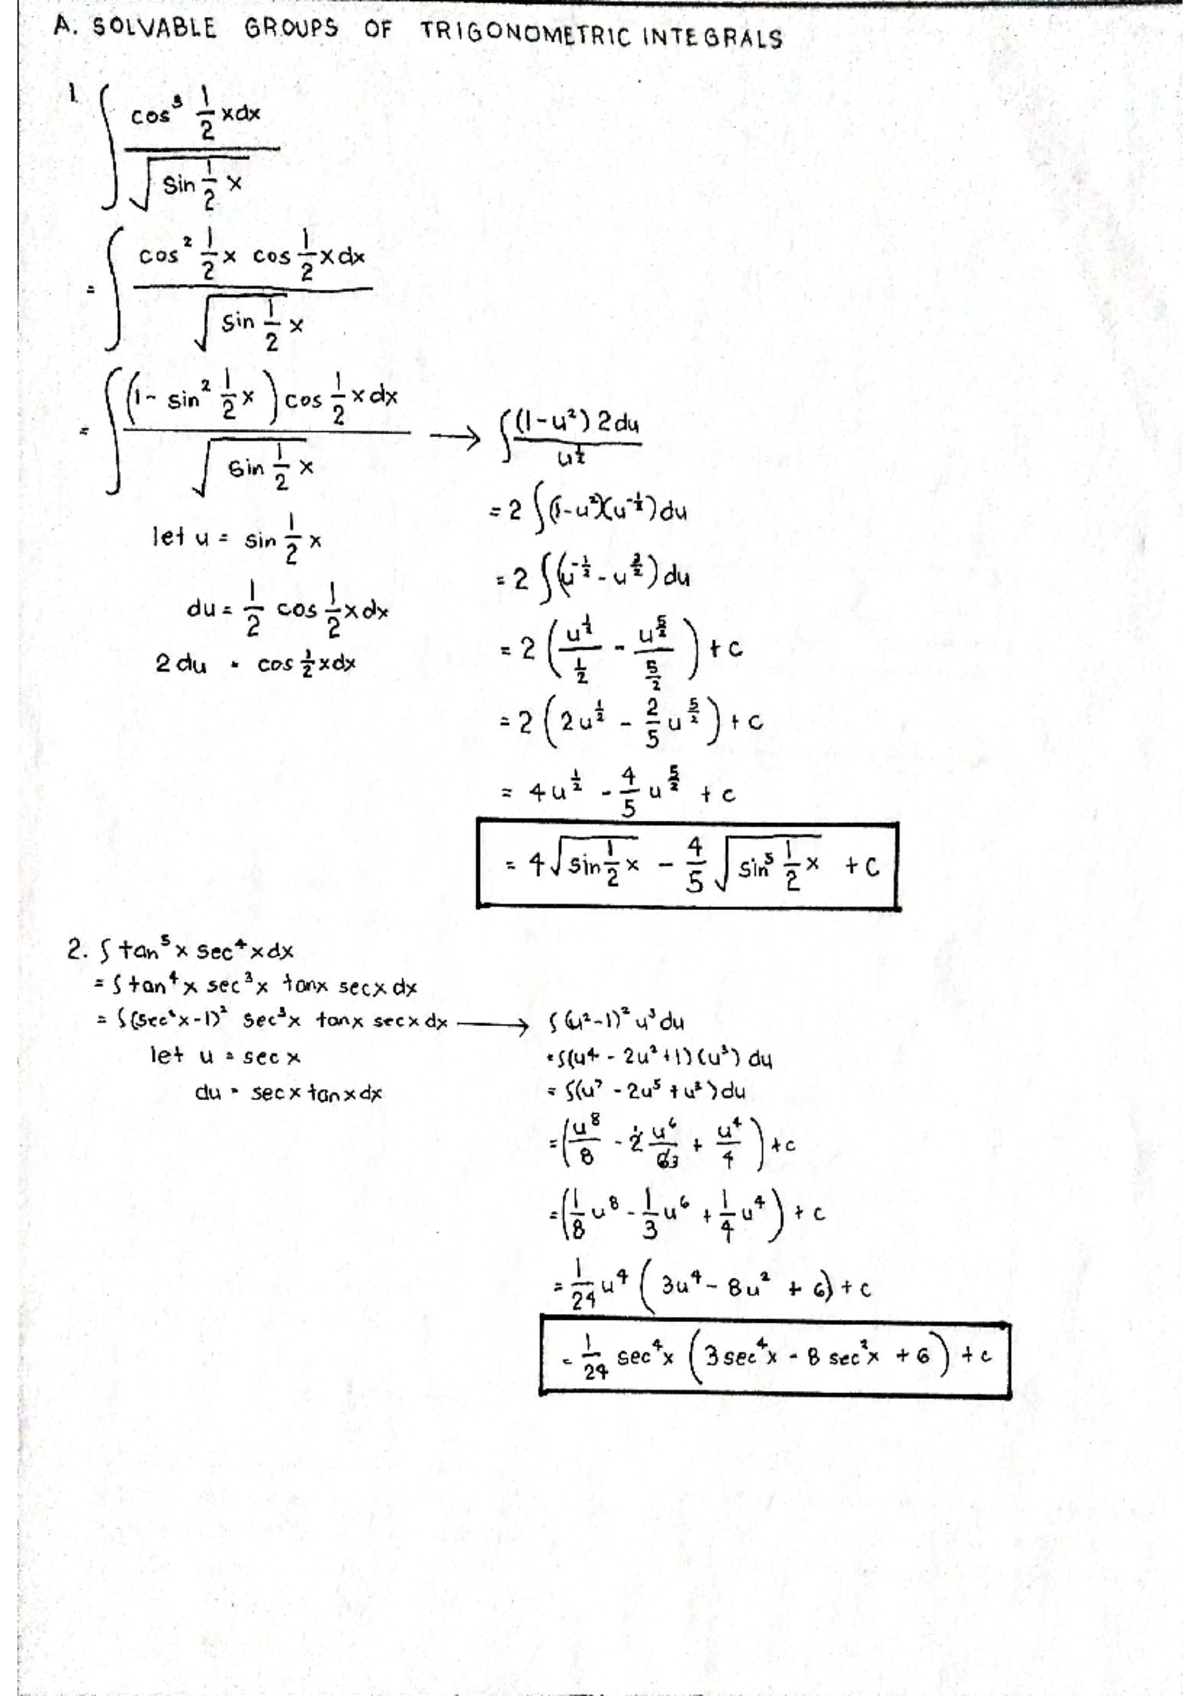 A. SOLVABLE GROUPS OF TRIGONOMETRIC INTEGRALS
1. ∫ (cos³ 1/2 x dx) / √(sin 1/2 x)
= ∫ (cos² 1/2 x cos 1/2 x dx) / √(sin 1/2 x)
= ∫ ((1 - sin² 1/2 x) cos 1/2 x dx) / √(sin 1/2 x) → ∫ ((1-u²) 2du) / u^(1/2)
let u = sin 1/2 x
du = 1/2 cos 1/2 x dx
2 du = cos 1/2 x dx
= 2 ∫ (1-u²)(u^(-1/2)) du
= 2 ∫ (u^(-1/2) - u^(3/2)) du
= 2 (u^(1/2) / (1/2) - u^(5/2) / (5/2)) + c
= 2 (2u^(1/2) - 2/5 u^(5/2)) + c
= 4u^(1/2) - 4/5 u^(5/2) + c
= 4√(sin 1/2 x) - 4/5 √(sin⁵ 1/2 x) + C
2. ∫ tan⁵x sec⁴x dx
= ∫ tan⁴x sec³x tanx secx dx
= ∫ (sec²x-1)² sec³x tanx secx dx → ∫ (u²-1)² u³ du
let u = sec x
du = sec x tan x dx
= ∫ (u⁴ - 2u² + 1)(u³) du
= ∫ (u⁷ - 2u⁵ + u³) du
= (u⁸/8 - 2 u⁶/6 3 + u⁴/4) + c
= (1/8 u⁸ - 1/3 u⁶ + 1/4 u⁴) + c
= 1/24 u⁴ (3u⁴ - 8u² + 6) + c
= 1/24 sec⁴x (3 sec⁴x - 8 sec²x + 6) + c